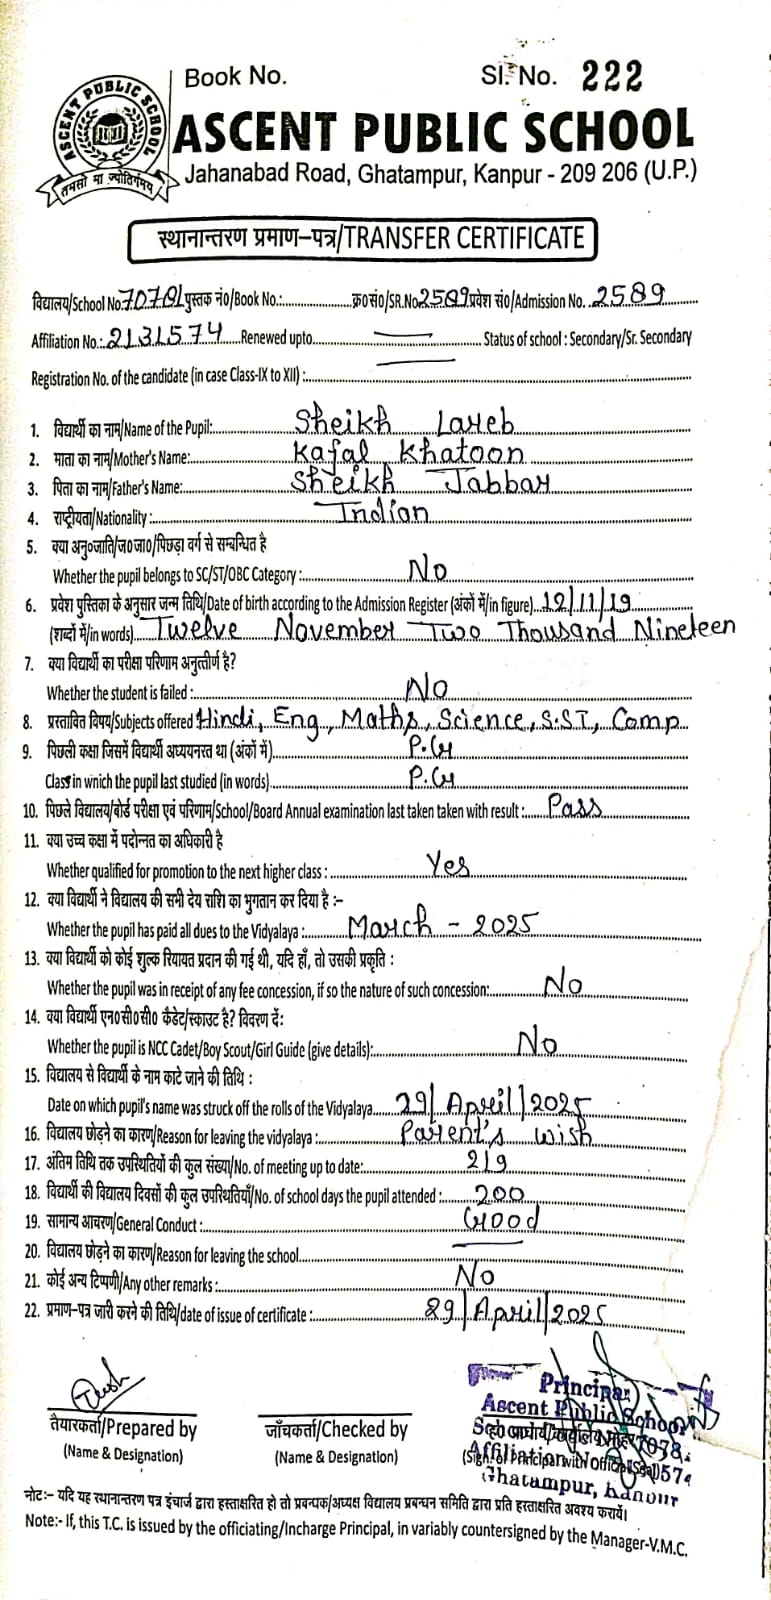 Book No. Sl. No. 222
ASCENT PUBLIC SCHOOL
तमसो मा ज्योतिर्गमय
ASCENT PUBLIC SCHOOL
Jahanabad Road, Ghatampur, Kanpur - 209 206 (U.P.)
स्थानान्तरण प्रमाण-पत्र/TRANSFER CERTIFICATE
विद्यालय/School No. 70781 पुस्तक नं०/Book No.: क्र०सं०/SR.No. 2589 प्रवेश सं०/Admission No. 2589
Affiliation No.: 2131574 Renewed upto — Status of school : Secondary/Sr. Secondary
Registration No. of the candidate (in case Class-IX to XII) : —
1. विद्यार्थी का नाम/Name of the Pupil: Sheikh Lareb
2. माता का नाम/Mother's Name: Kajal Khatoon
3. पिता का नाम/Father's Name: Sheikh Jabbar
4. राष्ट्रीयता/Nationality : Indian
5. क्या अनु०जाति/ज०जा०/पिछड़ा वर्ग से सम्बन्धित है
Whether the pupil belongs to SC/ST/OBC Category : No
6. प्रवेश पुस्तिका के अनुसार जन्म तिथि/Date of birth according to the Admission Register (अंकों में/in figure) 12/11/19
(शब्दों में/in words) Twelve November Two Thousand Nineteen
7. क्या विद्यार्थी का परीक्षा परिणाम अनुत्तीर्ण है?
Whether the student is failed : No
8. प्रस्तावित विषय/Subjects offered Hindi, Eng, Maths, Science, S.ST, Comp
9. पिछली कक्षा जिसमें विद्यार्थी अध्ययनरत था (अंकों में) P.G
Class in wnich the pupil last studied (in words) P.G
10. पिछले विद्यालय/बोर्ड परीक्षा एवं परिणाम/School/Board Annual examination last taken taken with result : Pass
11. क्या उच्च कक्षा में पदोन्नत का अधिकारी है
Whether qualified for promotion to the next higher class : Yes
12. क्या विद्यार्थी ने विद्यालय की सभी देय राशि का भुगतान कर दिया है :-
Whether the pupil has paid all dues to the Vidyalaya : March - 2025
13. क्या विद्यार्थी को कोई शुल्क रियायत प्रदान की गई थी, यदि हाँ, तो उसकी प्रकृति :
Whether the pupil was in receipt of any fee concession, if so the nature of such concession: No
14. क्या विद्यार्थी एन०सी०सी० कैडेट/स्काउट है? विवरण दें:
Whether the pupil is NCC Cadet/Boy Scout/Girl Guide (give details): No
15. विद्यालय से विद्यार्थी के नाम काटे जाने की तिथि :
Date on which pupil's name was struck off the rolls of the Vidyalaya 29/April/2025
16. विद्यालय छोड़ने का कारण/Reason for leaving the vidyalaya : Parent's wish
17. अंतिम तिथि तक उपस्थितियों की कुल संख्या/No. of meeting up to date: 219
18. विद्यार्थी की विद्यालय दिवसों की कुल उपस्थितियाँ/No. of school days the pupil attended : 200
19. सामान्य आचरण/General Conduct : Good
20. विद्यालय छोड़ने का कारण/Reason for leaving the school —
21. कोई अन्य टिप्पणी/Any other remarks : No
22. प्रमाण-पत्र जारी करने की तिथि/date of issue of certificate : 29/April/2025
Principal
Ascent Public School
तैयारकर्ता/Prepared by जाँचकर्ता/Checked by
(Name & Designation) (Name & Designation)
Ghatampur, Kanpur
नोट:- यदि यह स्थानान्तरण पत्र इंचार्ज द्वारा हस्ताक्षरित हो तो प्रबन्धक/अध्यक्ष विद्यालय प्रबन्धन समिति द्वारा प्रति हस्ताक्षरित अवश्य करायें।
Note:- If, this T.C. is issued by the officiating/Incharge Principal, in variably countersigned by the Manager-V.M.C.